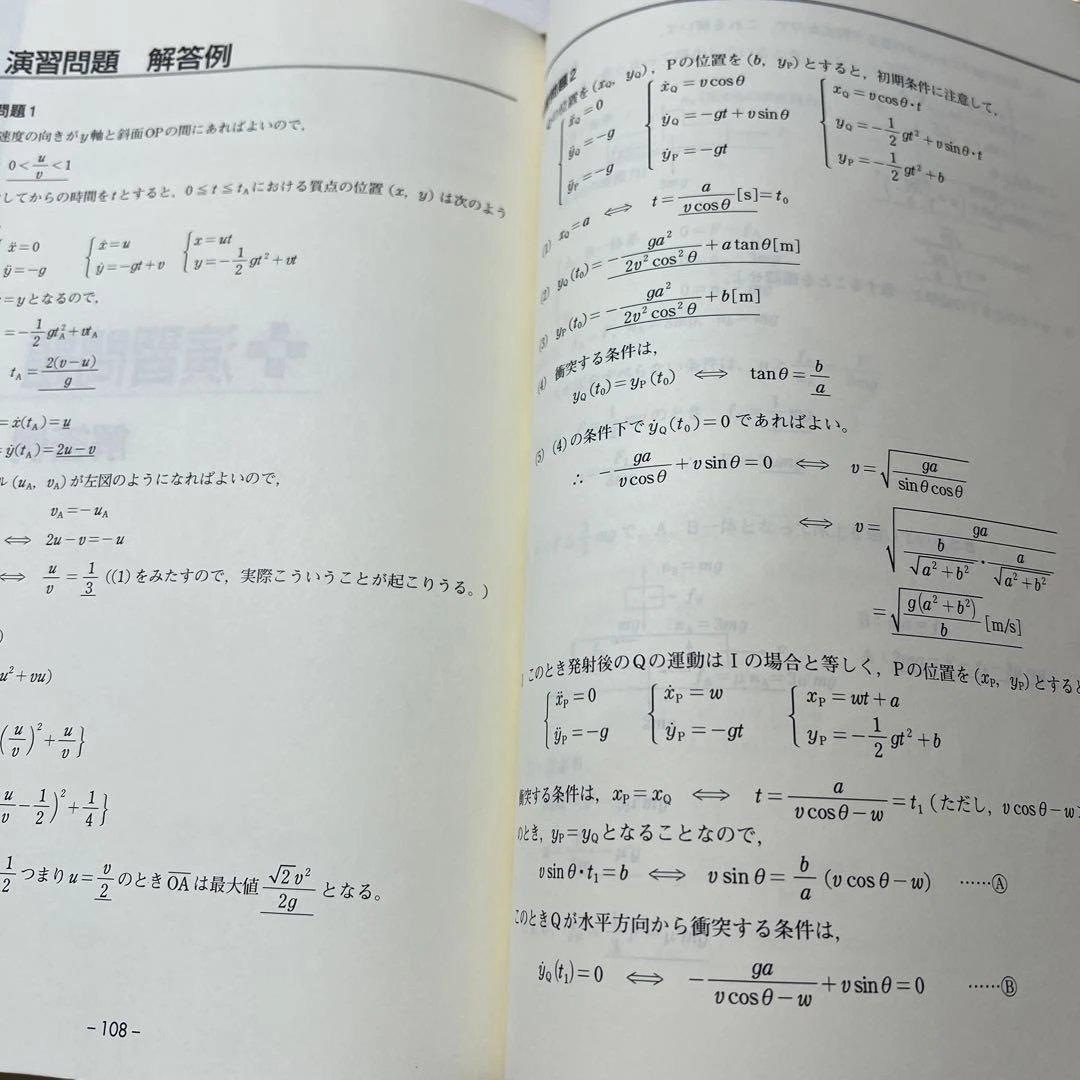 演習問題 解答例
問題1
速度の向きがy軸と斜面OPの間にあればよいので,
0<u/v<1
してからの時間をtとすると, 0≦t≦t_Aにおける質点の位置(x, y)は次のよう
ẍ=0 ẋ=u x=ut
ÿ=-g ẏ=-gt+v y=-1/2 gt²+vt
=yとなるので,
=-1/2 gt_A²+vt_A
t_A=2(v-u)/g
=ẋ(t_A)=u
=ẏ(t_A)=2u-v
ル(u_A, v_A)が左図のようになればよいので,
v_A=-u_A
⟺ 2u-v=-u
⟺ u/v=1/3 ((1)をみたすので, 実際こういうことが起こりうる。)
u²+vu)
(u/v)²+u/v}
u/v-1/2)²+1/4}
1/2 つまりu=v/2のときOAは最大値√2v²/2gとなる。
-108-
問題2
Qの位置を(x_Q, y_Q), Pの位置を(b, y_P)とすると, 初期条件に注意して,
ẍ_Q=0 ẋ_Q=v cosθ x_Q=v cosθ・t
ÿ_Q=-g ẏ_Q=-gt+v sinθ y_Q=-1/2 gt²+v sinθ・t
ÿ_P=-g ẏ_P=-gt y_P=-1/2 gt²+b
(1) x_Q=a ⟺ t=a/(v cosθ)[s]=t₀
(2) y_Q(t₀)=-ga²/(2v²cos²θ)+a tanθ[m]
(3) y_P(t₀)=-ga²/(2v²cos²θ)+b[m]
(4) 衝突する条件は,
y_Q(t₀)=y_P(t₀) ⟺ tanθ=b/a
(5) (4)の条件下でẏ_Q(t₀)=0であればよい。
∴ -ga/(v cosθ)+v sinθ=0 ⟺ v=√(ga/(sinθcosθ))
⟺ v=√(ga/(b/√(a²+b²)・a/√(a²+b²)))
=√(g(a²+b²)/b)[m/s]
このとき発射後のQの運動はⅠの場合と等しく, Pの位置を(x_P, y_P)とすると
ẍ_P=0 ẋ_P=w x_P=wt+a
ÿ_P=-g ẏ_P=-gt y_P=-1/2 gt²+b
衝突する条件は, x_P=x_Q ⟺ t=a/(v cosθ-w)=t₁(ただし, v cosθ-w
のとき, y_P=y_Qとなることなので,
v sinθ・t₁=b ⟺ v sinθ=b/a(v cosθ-w) ……Ⓐ
このときQが水平方向から衝突する条件は,
ẏ_Q(t₁)=0 ⟺ -ga/(v cosθ-w)+v sinθ=0 ……Ⓑ